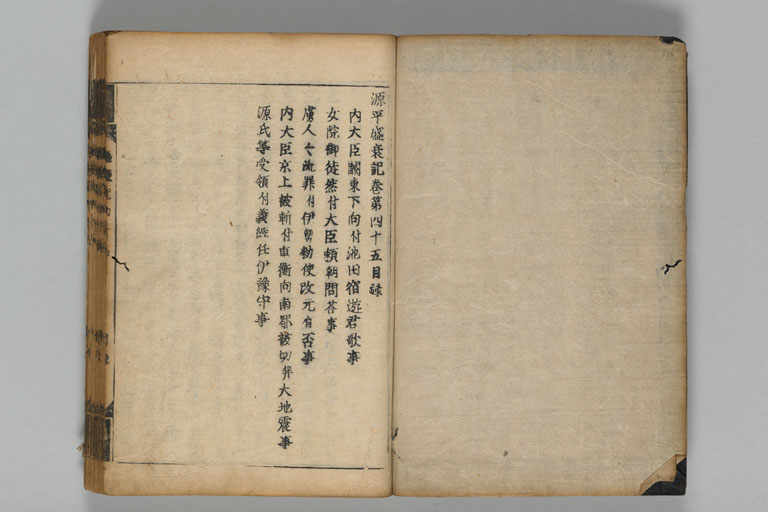 源平盛衰記巻第四十五目録
内大臣關東下向付池田宿遊君歌事
女院御徒然付大臣頼朝問答事
虜人々流罪付伊勢勅使改元有否事
内大臣京上被斬付重衡向南都被切并大地震事
源氏等受領付義經任伊豫守事